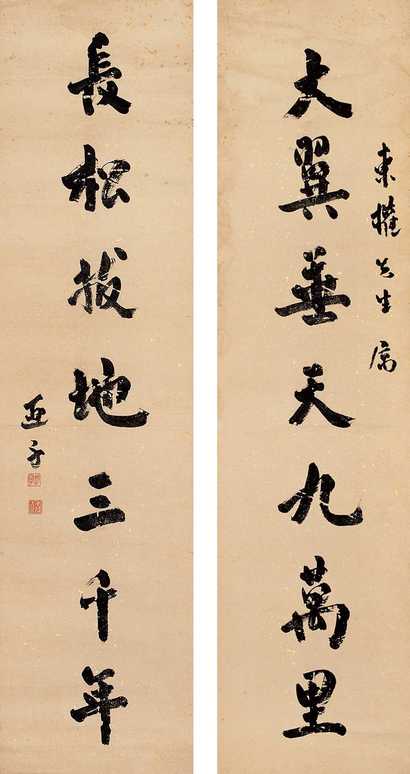 東權先生屬
大翼垂天九萬里
長松拔地三千年
亞子